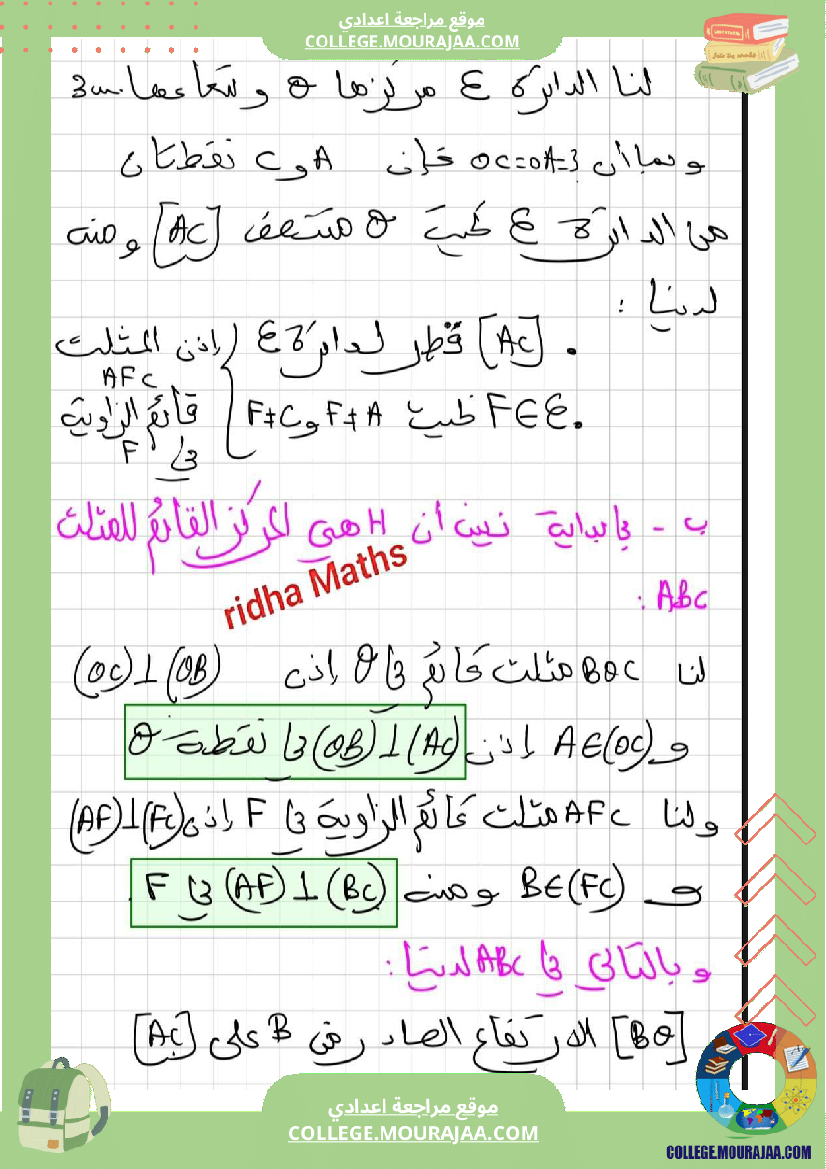 موقع مراجعة اعدادي
COLLEGE.MOURAJAA.COM
لنا الدائرة ℰ مركزها O و شعاعها 3cm
و بما أن OC=OA=3 فإن A و C نقطتان
من الدائرة ℰ حيث O منتصف [AC] و منه
لدينا :
. [AC] قطر لدائرة ℰ
. F∈ℰ حيث F≠A و F≠C
إذن المثلث
AFC
قائم الزاوية
في F
ب - في بداية نبين أن H هي المركز القائم للمثلث
ABC :
ridha Maths
لنا BOC مثلث قائم في O إذن (OC)⊥(OB)
و A∈(OC) إذن (OB)⊥(AC) في نقطة O
و لنا AFC مثلث قائم الزاوية في F إذن (AF)⊥(FC)
و B∈(FC) و منه (AF)⊥(BC) في F
و بالتالي في ABC لدينا :
[BO] الارتفاع الصادر من B على [AC]
موقع مراجعة اعدادي
COLLEGE.MOURAJAA.COM
COLLEGE.MOURAJAA.COM